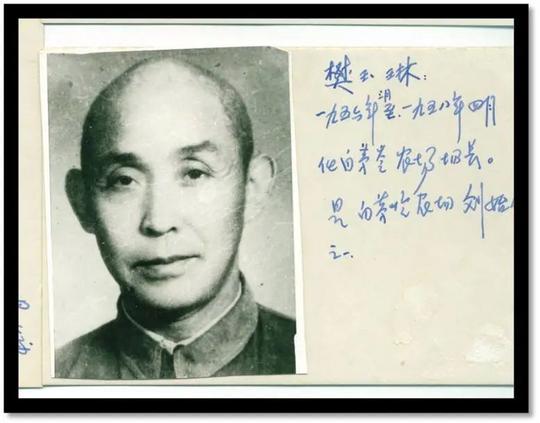 樊玉琳：
一九五六年3月至一九五八年四月
任白茅岭农场场长。
是白茅岭农场创始人
之一.